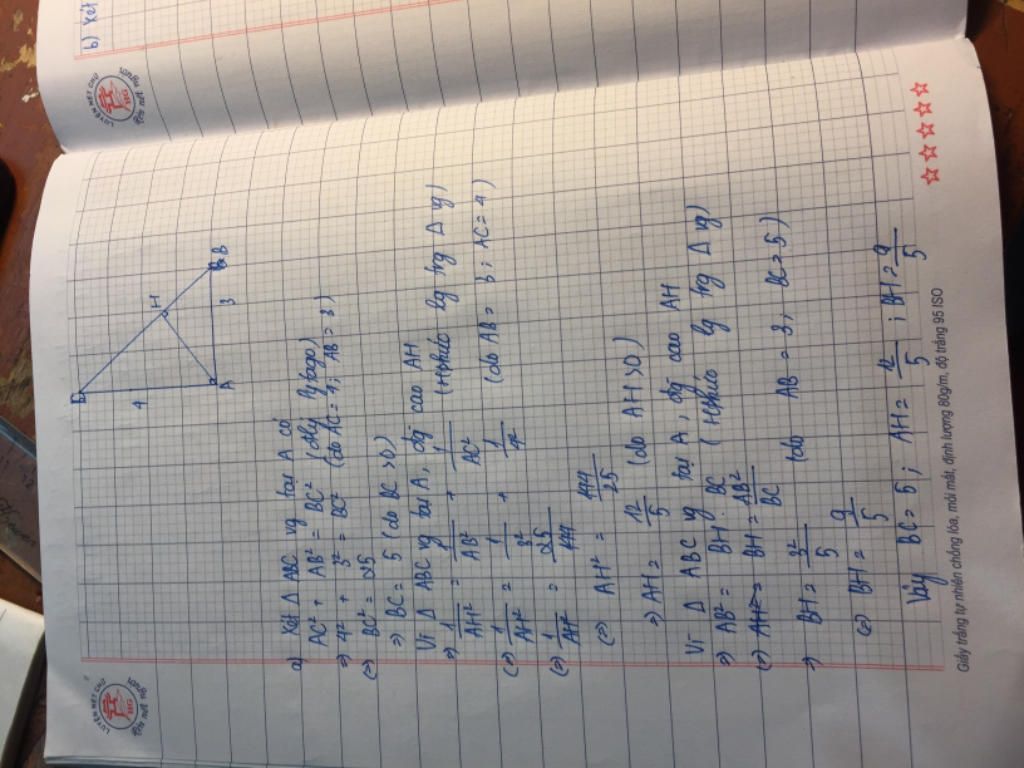 LUYỆN NẾT CHỮ
Rèn nết người
4
H
A
3
B
a) Xét Δ ABC vg tại A có
AC² + AB² = BC² (đlý Pytago)
=> 4² + 3² = BC² (do AC = 4; AB = 3)
(=) BC² = 25
=> BC = 5 (do BC >0)
Vì Δ ABC vg tại A, đg cao AH
=> 1/AH² = 1/AB² + 1/AC² (Hệ thức lg trg Δ vg)
(=) 1/AH² = 1/3² + 1/4² (do AB = 3; AC = 4)
(=) 1/AH² = 25/144
(=) AH² = 144/25
=> AH = 12/5 (do AH >0)
Vì Δ ABC vg tại A, đg cao AH
=> AB² = BH . BC (Hệ thức lg trg Δ vg)
(=) BH = AB²/BC
=> BH = 3²/5 (do AB = 3; BC = 5)
(=) BH = 9/5
Vậy BC = 5; AH = 12/5; BH = 9/5
Giấy trắng tự nhiên chống lóa, mỏi mắt, định lượng 80g/m, độ trắng 95 ISO
LUYỆN NẾT CHỮ
Rèn nết người
b) Xét